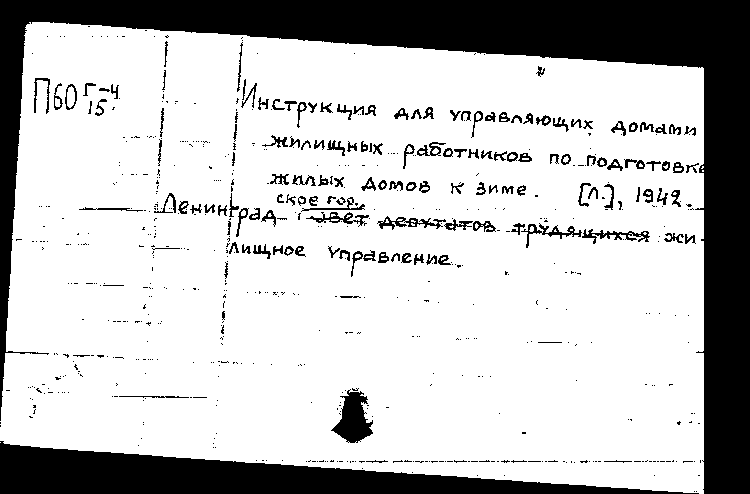 П60 Г-4
15
Инструкция для управляющих домами
жилищных работников по подготовке
жилых домов к зиме. [Л.], 1942.
ское гор.
Ленинград совет депутатов трудящихся жи-
лищное управление.